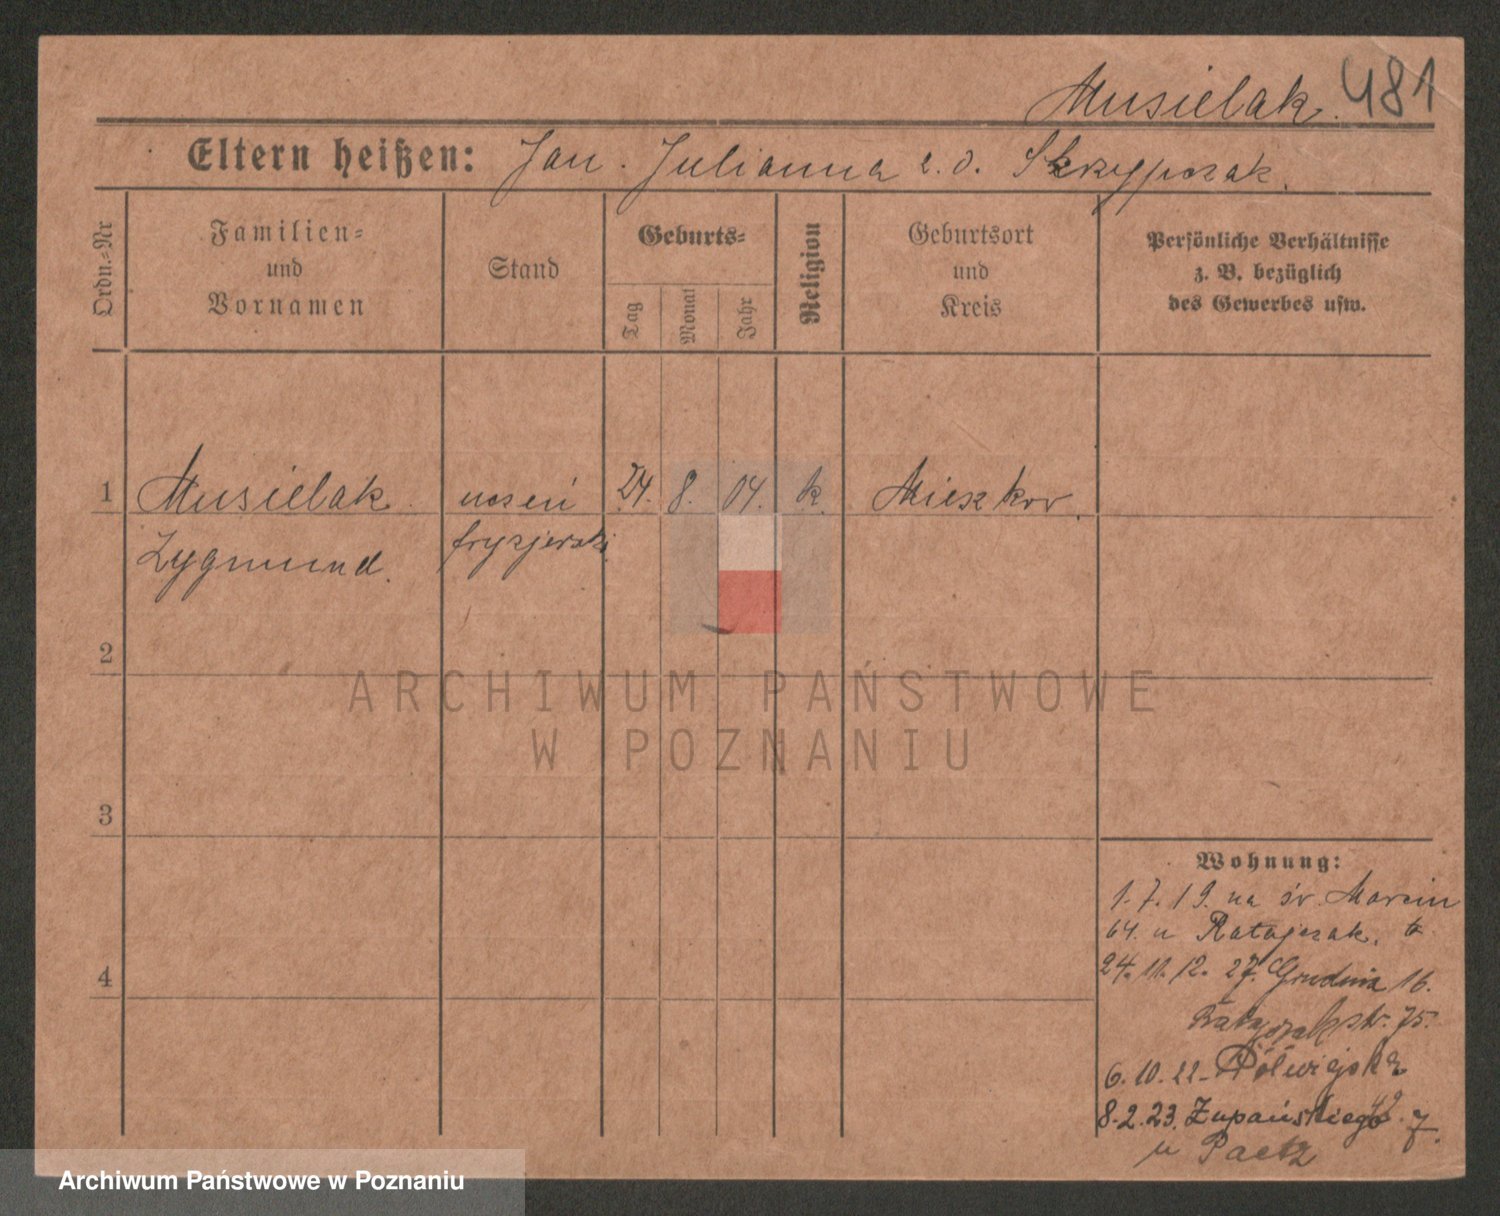 Musielak. 481
Eltern heißen: Jan. Julianna z. d. Skrzypczak.
Ordn.-Nr
Familien-
und
Vornamen
Stand
Geburts-
Tag
Monat
Jahr
Religion
Geburtsort
und
Kreis
Persönliche Verhältnisse
z. B. bezüglich
des Gewerbes usw.
1 Musielak uczeń 24. 8. 04. k. Mieszkov.
Zygmund. fryzjerski
2
ARCHIWUM PAŃSTWOWE
W POZNANIU
3
Wohnung:
1.7.19. na św. Marcin
64. u Ratajczak.
27. Grudnia 16.
str. 75.
6.10.22 Półwiejska
49.
8.2.23. Żupańskiego 7.
u Paetz
4
Archiwum Państwowe w Poznaniu